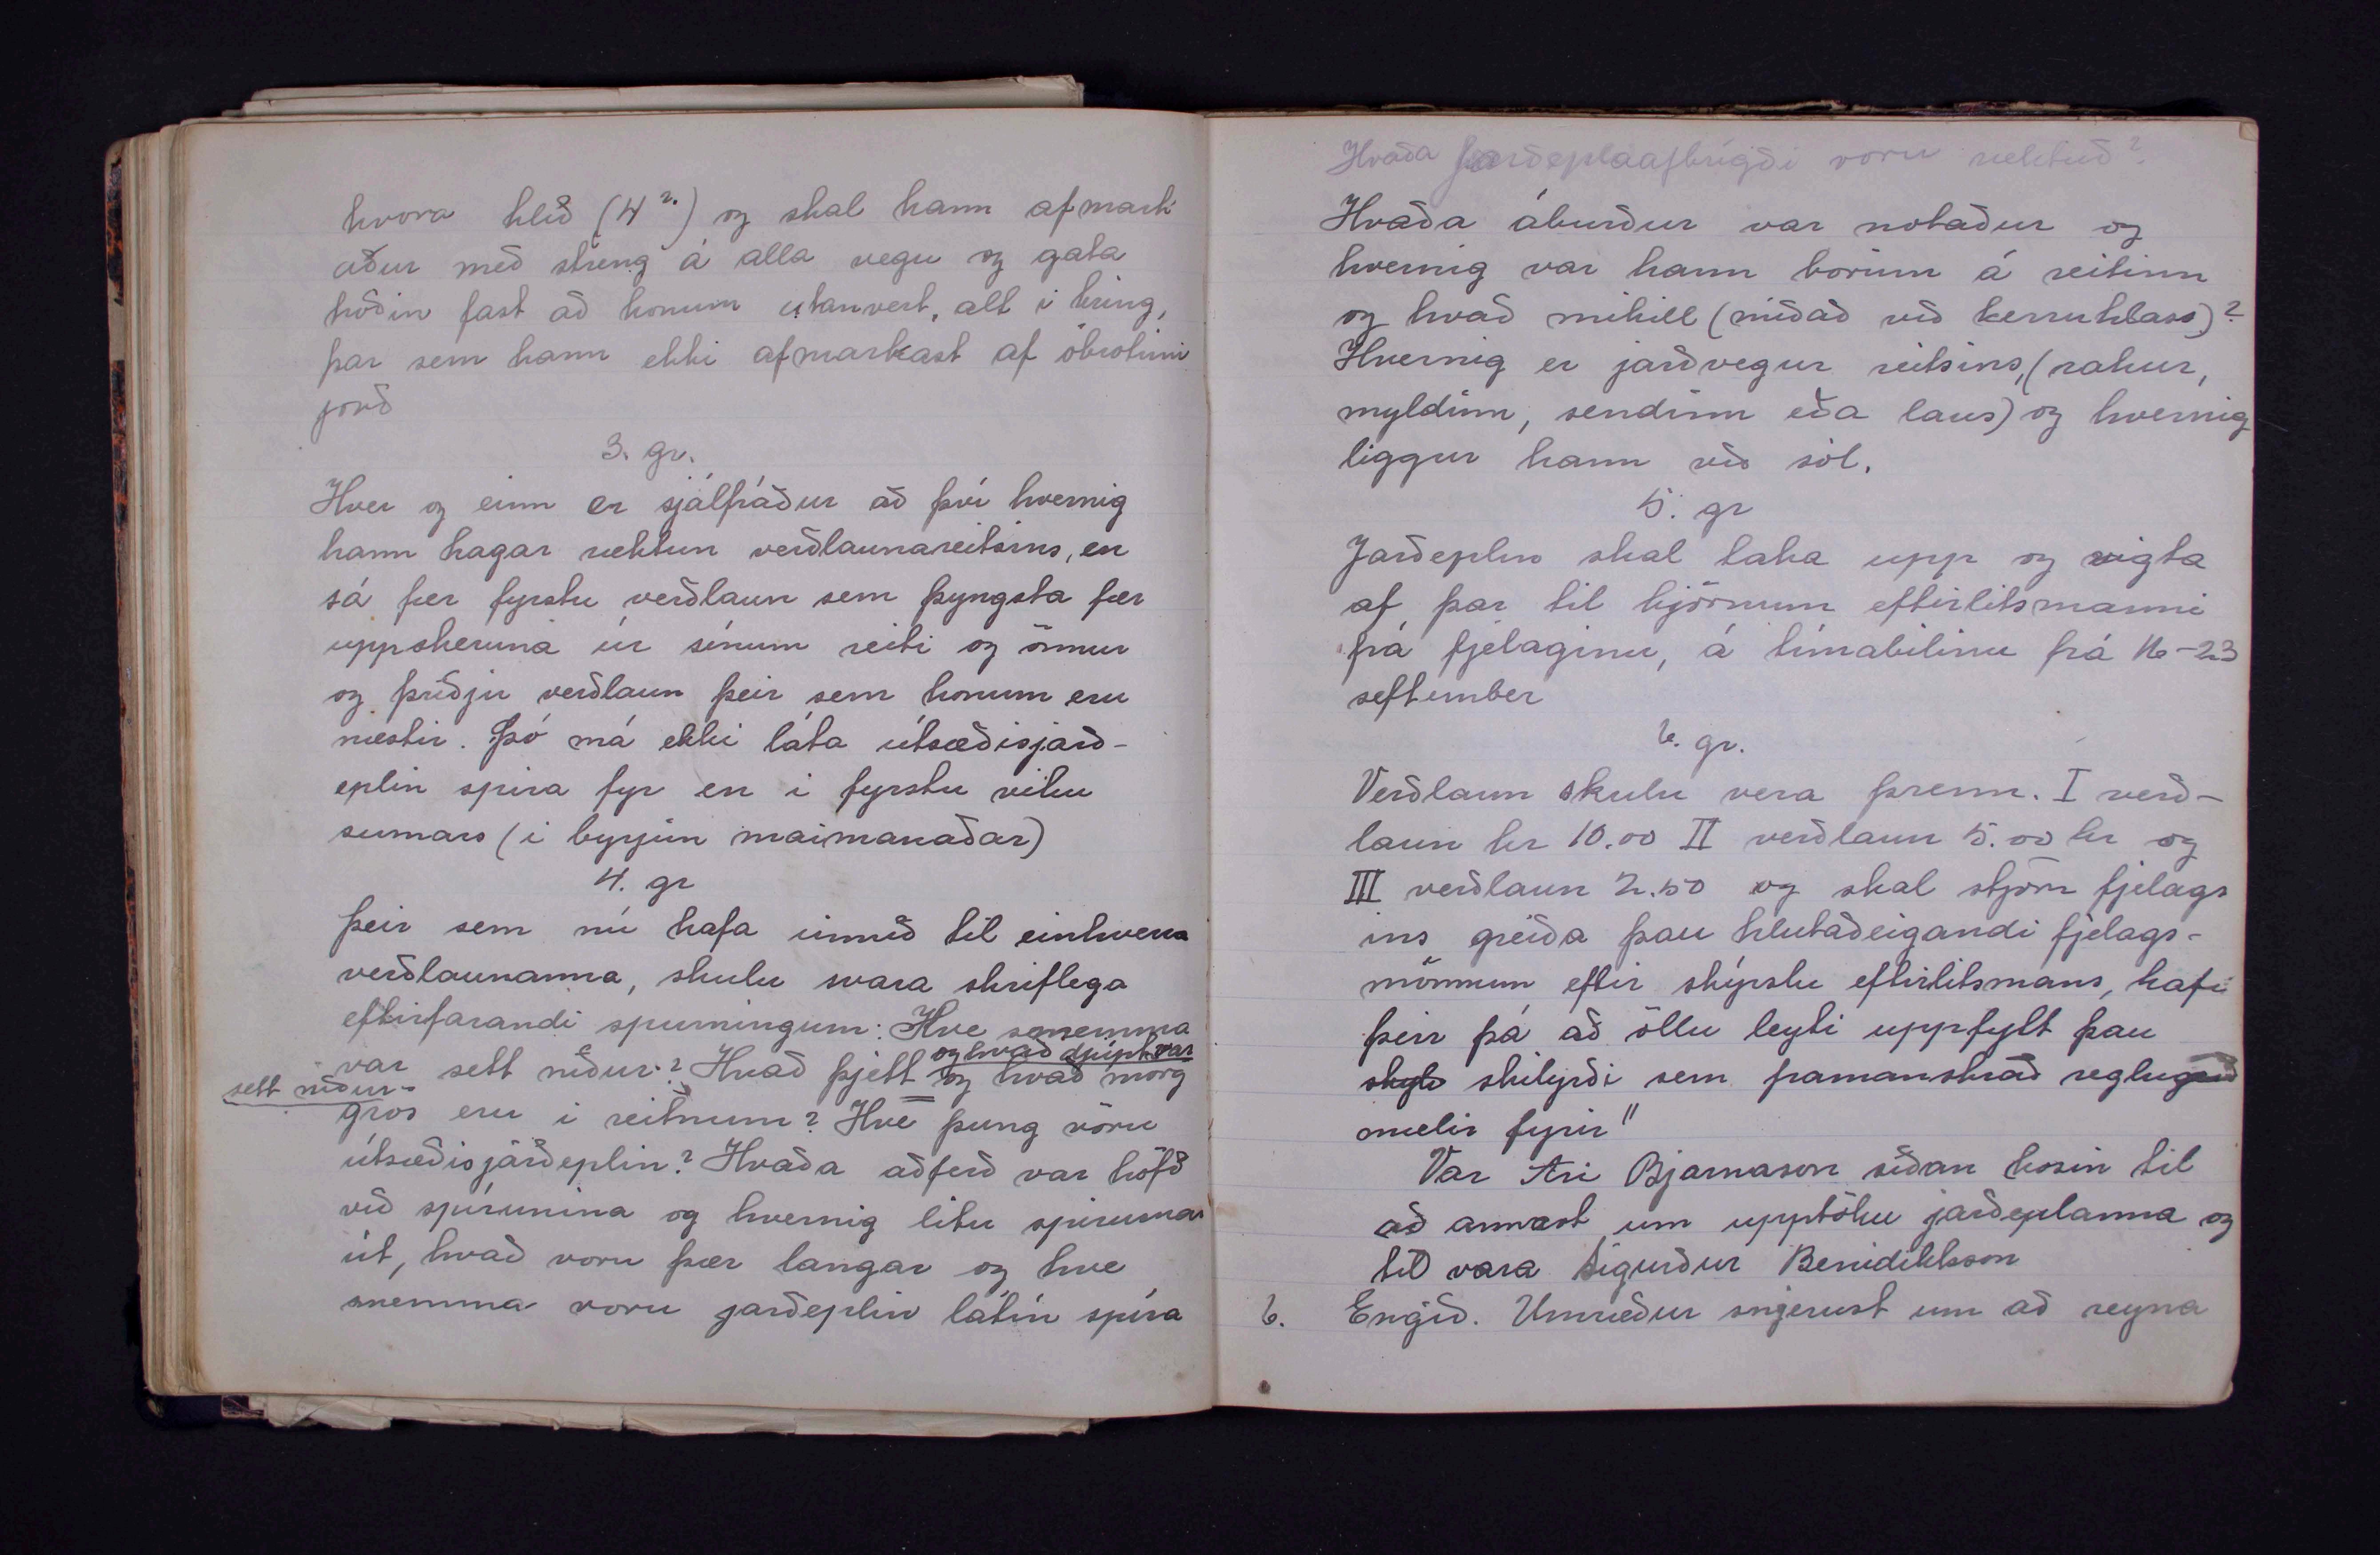 hvora hlið (4².) og skal hann afmark
aður með streng á alla vegu og gata
tröðin fast að honum utanvert, alt i hring,
þar sem hann ekki afmarkast af óbrotinni
jörð
3. gr.
Hver og einn er sjálfráður að því hvernig
hann hagar ræktun verðlaunareitsins, en
sá fær fyrstu verðlaun sem þyngsta fær
uppskeruna úr sínum reiti og önnur
og þriðju verðlaun þeir sem honum eru
næstir. Þó má ekki láta útsæðisjarð-
eplin spira fyr en i fyrstu viku
sumars (i byrjun maimanaðar)
4. gr
Þeir sem nú hafa unnið til einhverra
verðlaunanna, skulu svara skriflega
eftirfarandi spurningum: Hve snemma
og hvað djúpt var
var sett niður? Hvað þjett og hvað mörg
sett niður-
grös eru i reitnum? Hve þung vóru
útsæðisjárðeplin? Hvaða aðferð var höfð
við spírunina og hvernig litu spirurnar
út, hvað voru þær langar og hve
snemma voru jarðeplin látin spíra
Hvaða jarðeplaafbrigði voru ræktuð?
Hvaða áburður var notaður og
hvernig var hann borinn á reitinn
og hvað mikill (miðað við kerruhlass)?
Hvernig er jarðvegur reitsins, (rakur,
myldinn, sendinn eða laus) og hvernig
liggur hann við sól.
5. gr
Jarðeplin skal taka upp og vigta
af þar til kjörnum eftirlitsmanni
frá fjelaginu, á timabilinu frá 16-23
seftember
6. gr.
Verðlaun skulu vera þrenn. I verð-
laun kr 10.00 II verðlaun 5.00 kr og
III verðlaun 2.50 og skal stjórn fjelags
ins greiða þau hlutaðeigandi fjelags-
mönnum eftir skýrslu eftirlitsmans, hafi
þeir þá að öllu leyti uppfylt þau
skyls skilyrði sem framanskráð reglugerð
mælir fyrir"
Var Ari Bjarnason síðan kosin til
að annast um upptöku jarðeplanna og
til vara Sigurður Benidiktsson
6. Engið. Umræður snjerust um að reyna